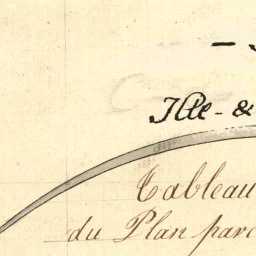 Ille - &
Tableau
du Plan parc